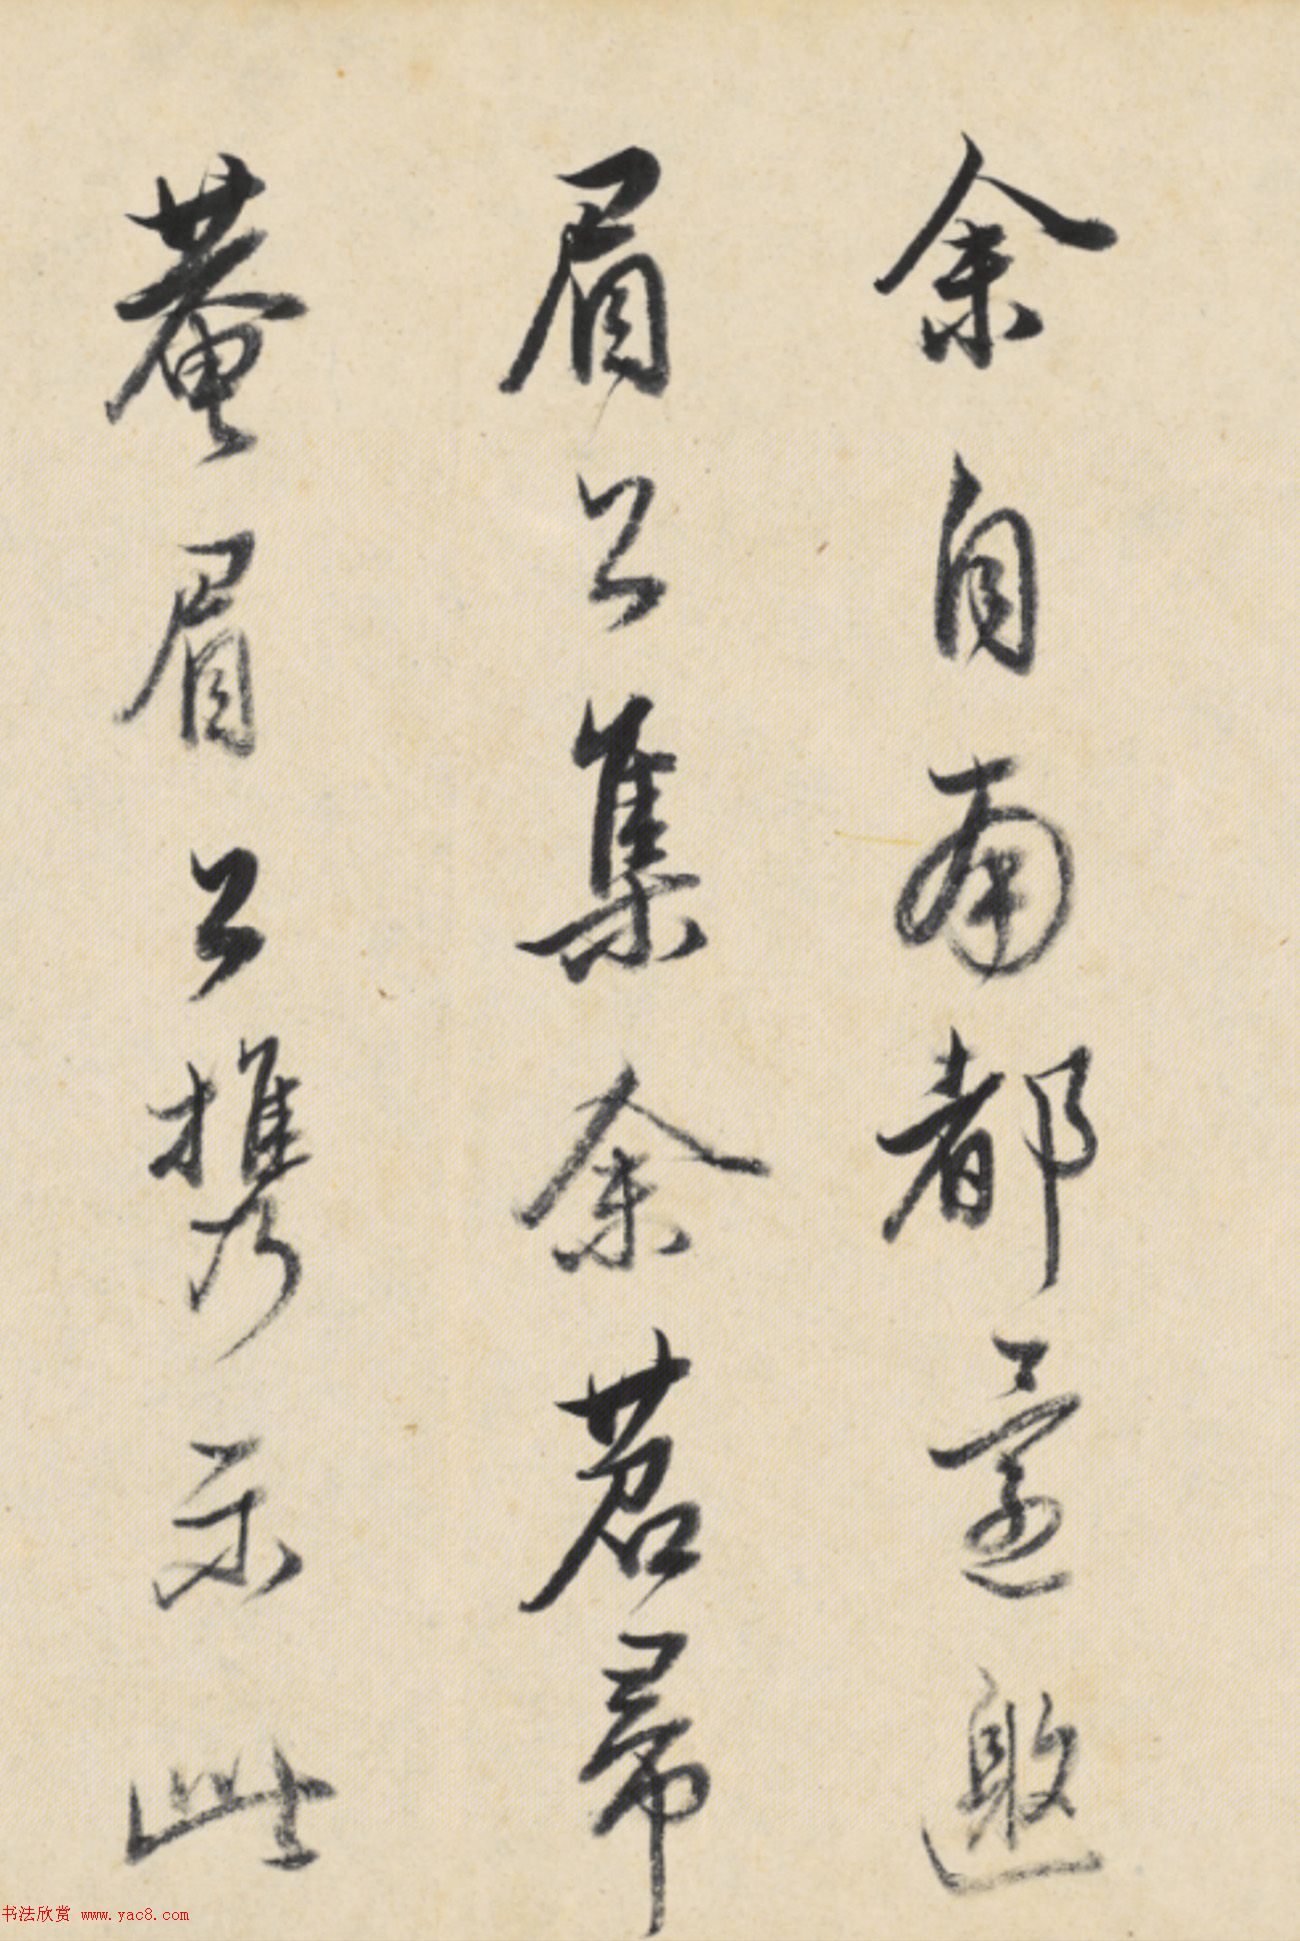 余自南都還邀
眉公集余苕帚
菴眉公攜示此
书法欣赏 www.yac8.com